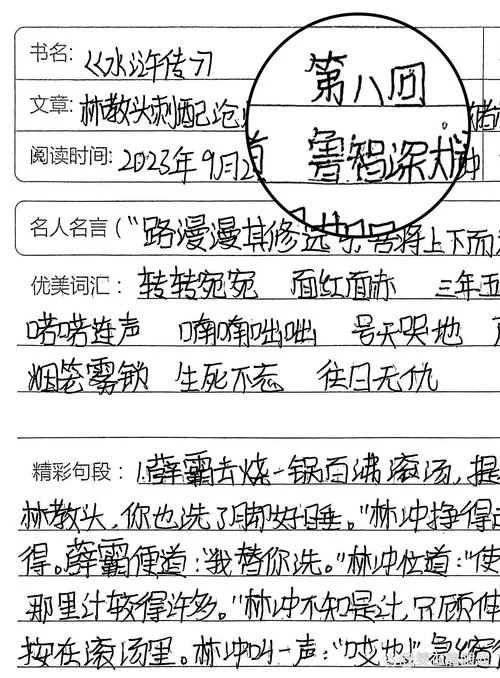 书名: 《水浒传》
第八回
文章: 林教头刺配沧
鲁智深大
阅读时间: 2023年9月2
名人名言 ("路漫漫其修远 吾将上下而
优美词汇: 转转宛宛 面红面赤 三年五
唠唠连声 喃喃咄咄 号天哭地
烟笼雾锁 生死不忘 往日无仇
精彩句段: 1.薛霸去烧一锅百沸滚汤,提
林教头,你也洗了脚好睡。"林冲挣得
得。薛霸便道:"我替你洗。"林冲忙道:"使
那里计较得许多。"林冲不知是计,只顾伸
按在滚汤里。林冲叫一声:"哎也"急缩